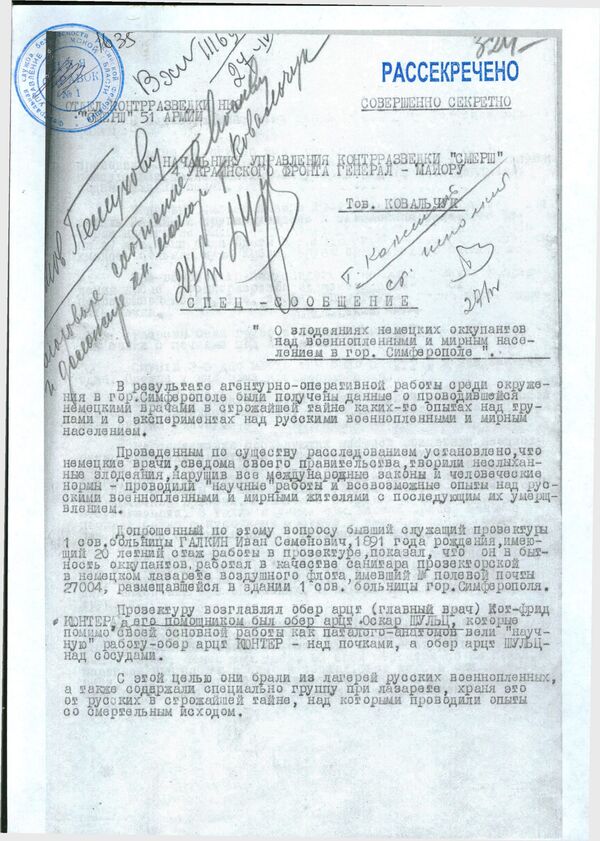 1035
Вх№ 1116
24/IV
324
РАССЕКРЕЧЕНО
ОТДЕЛ КОНТРРАЗВЕДКИ НК
"СМЕРШ" 51 АРМИИ
СОВЕРШЕННО СЕКРЕТНО
НАЧАЛЬНИКУ УПРАВЛЕНИЯ КОНТРРАЗВЕДКИ "СМЕРШ"
4 УКРАИНСКОГО ФРОНТА ГЕНЕРАЛ - МАЙОРУ
Тов. КОВАЛЬЧУК
Ковальчук
24/IV
24/IV
СПЕЦ - СООБЩЕНИЕ
" О злодеяниях немецких оккупантов
над военнопленными и мирным насе-
лением в гор. Симферополе ".
В результате агентурно-оперативной работы среди окруже-
ния в гор.Симферополе были получены данные о проводившейся
немецкими врачами в строжайшей тайне каких-то опытах над тру-
пами и о экспериментах над русскими военнопленными и мирным
населением.
Проведенным по существу расследованием установлено,что
немецкие врачи,сведома своего правительства,творили неслыхан-
ные злодеяния,нарушив все международные законы и человеческие
нормы - проводили "научные"работы и всевозможные опыты над рус-
скими военнопленными и мирными жителями с последующим их умерщ-
влением.
Допрошенный по этому вопросу бывший служащий прозектуры
1 сов.больницы ГАЛКИН Иван Семенович,1891 года рождения,имею-
щий 20 летний стаж работы в прозектуре,показал, что он в быт-
ность оккупантов,работал в качестве санитара прозекторской
в немецком лазарете воздушного флота,имевший № полевой почты
27004, размещавшейся в здании 1 сов. больницы гор.Симферополя.
Прозектуру возглавлял обер арцт (главный врач) Кот-фрид
КЮНТЕР, а его помощником был обер арцт Оскар ШУЛЬЦ, которые
помимо своей основной работы как паталого-анатомов вели "науч-
ную" работу-обер арцт КЮНТЕР - над почками, а обер арцт ШУЛЬЦ-
над сосудами.
С этой целью они брали из лагерей русских военнопленных,
а также содержали специально группу при лазарете, храня это
от русских в строжайшей тайне, над которыми проводили опыты
со смертельным исходом.